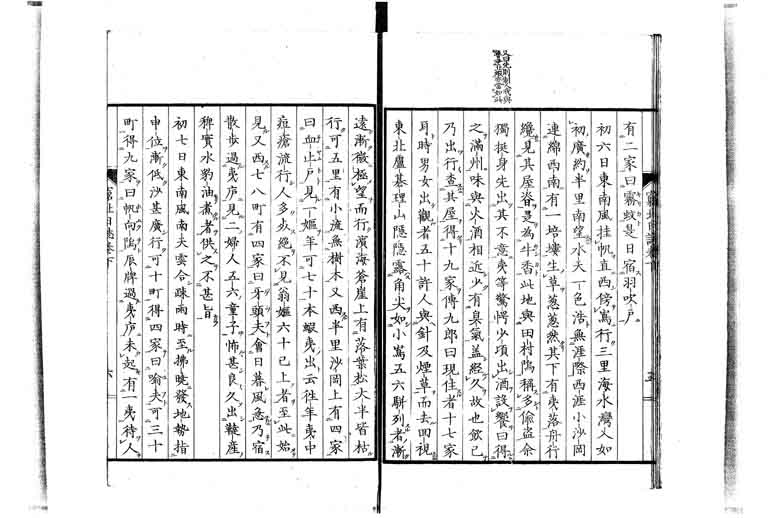 有二家曰霧蚊是日宿羽吹戸
初六日東南風挂帆直西傍嶌行三里海水灣入如
初廣約半里南望水天一色浩無涯際西涯小沙岡
連綿西南有一培塿生草蔥蔥然其下有夷落舟行
纔見其屋脊是為牛香此地與田村隝稱多偷盜余
獨挺身先出其不意夷等驚愕少頃出酒設饗曰得
之滿州味與火酒相近少有臭氣蓋經久故也飲已
乃出行查其屋得十九家傳九郎曰現住者十七家
耳時男女出觀者五十許人與針及煙草而去回視
東北盧基理山隱隱露角尖如小嶌五六聯列者漸
遠漸微極望而行濱海蒼崖上有落葉松大半皆枯
行可五里有小流無樹木又西半里沙岡上有四家
曰血止戸見一嫗年可七十本蝦夷出云往年夷中
痘瘡流行人多歿絕不見翁嫗六十已上者至此始
見又西七八町有四家曰牙頭夫會日暮風急乃宿
散步過夷戸見二婦人五六童子怖甚良久出鞑産
稗實水豹油煮者供之不甚旨
初七日東南風南天雲合疎雨時至拂曉發地勢指
申位漸低沙甚廣行可十町得四家曰喻夫可三十
町得九家曰帆向隝辰牌過夷戸未起有一夷待人
五
六